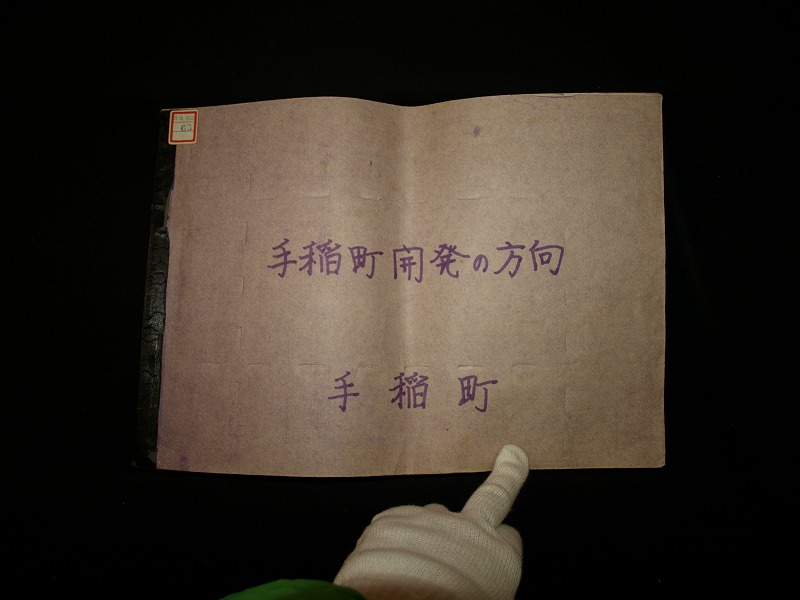 手稲町開発の方向
手稲町